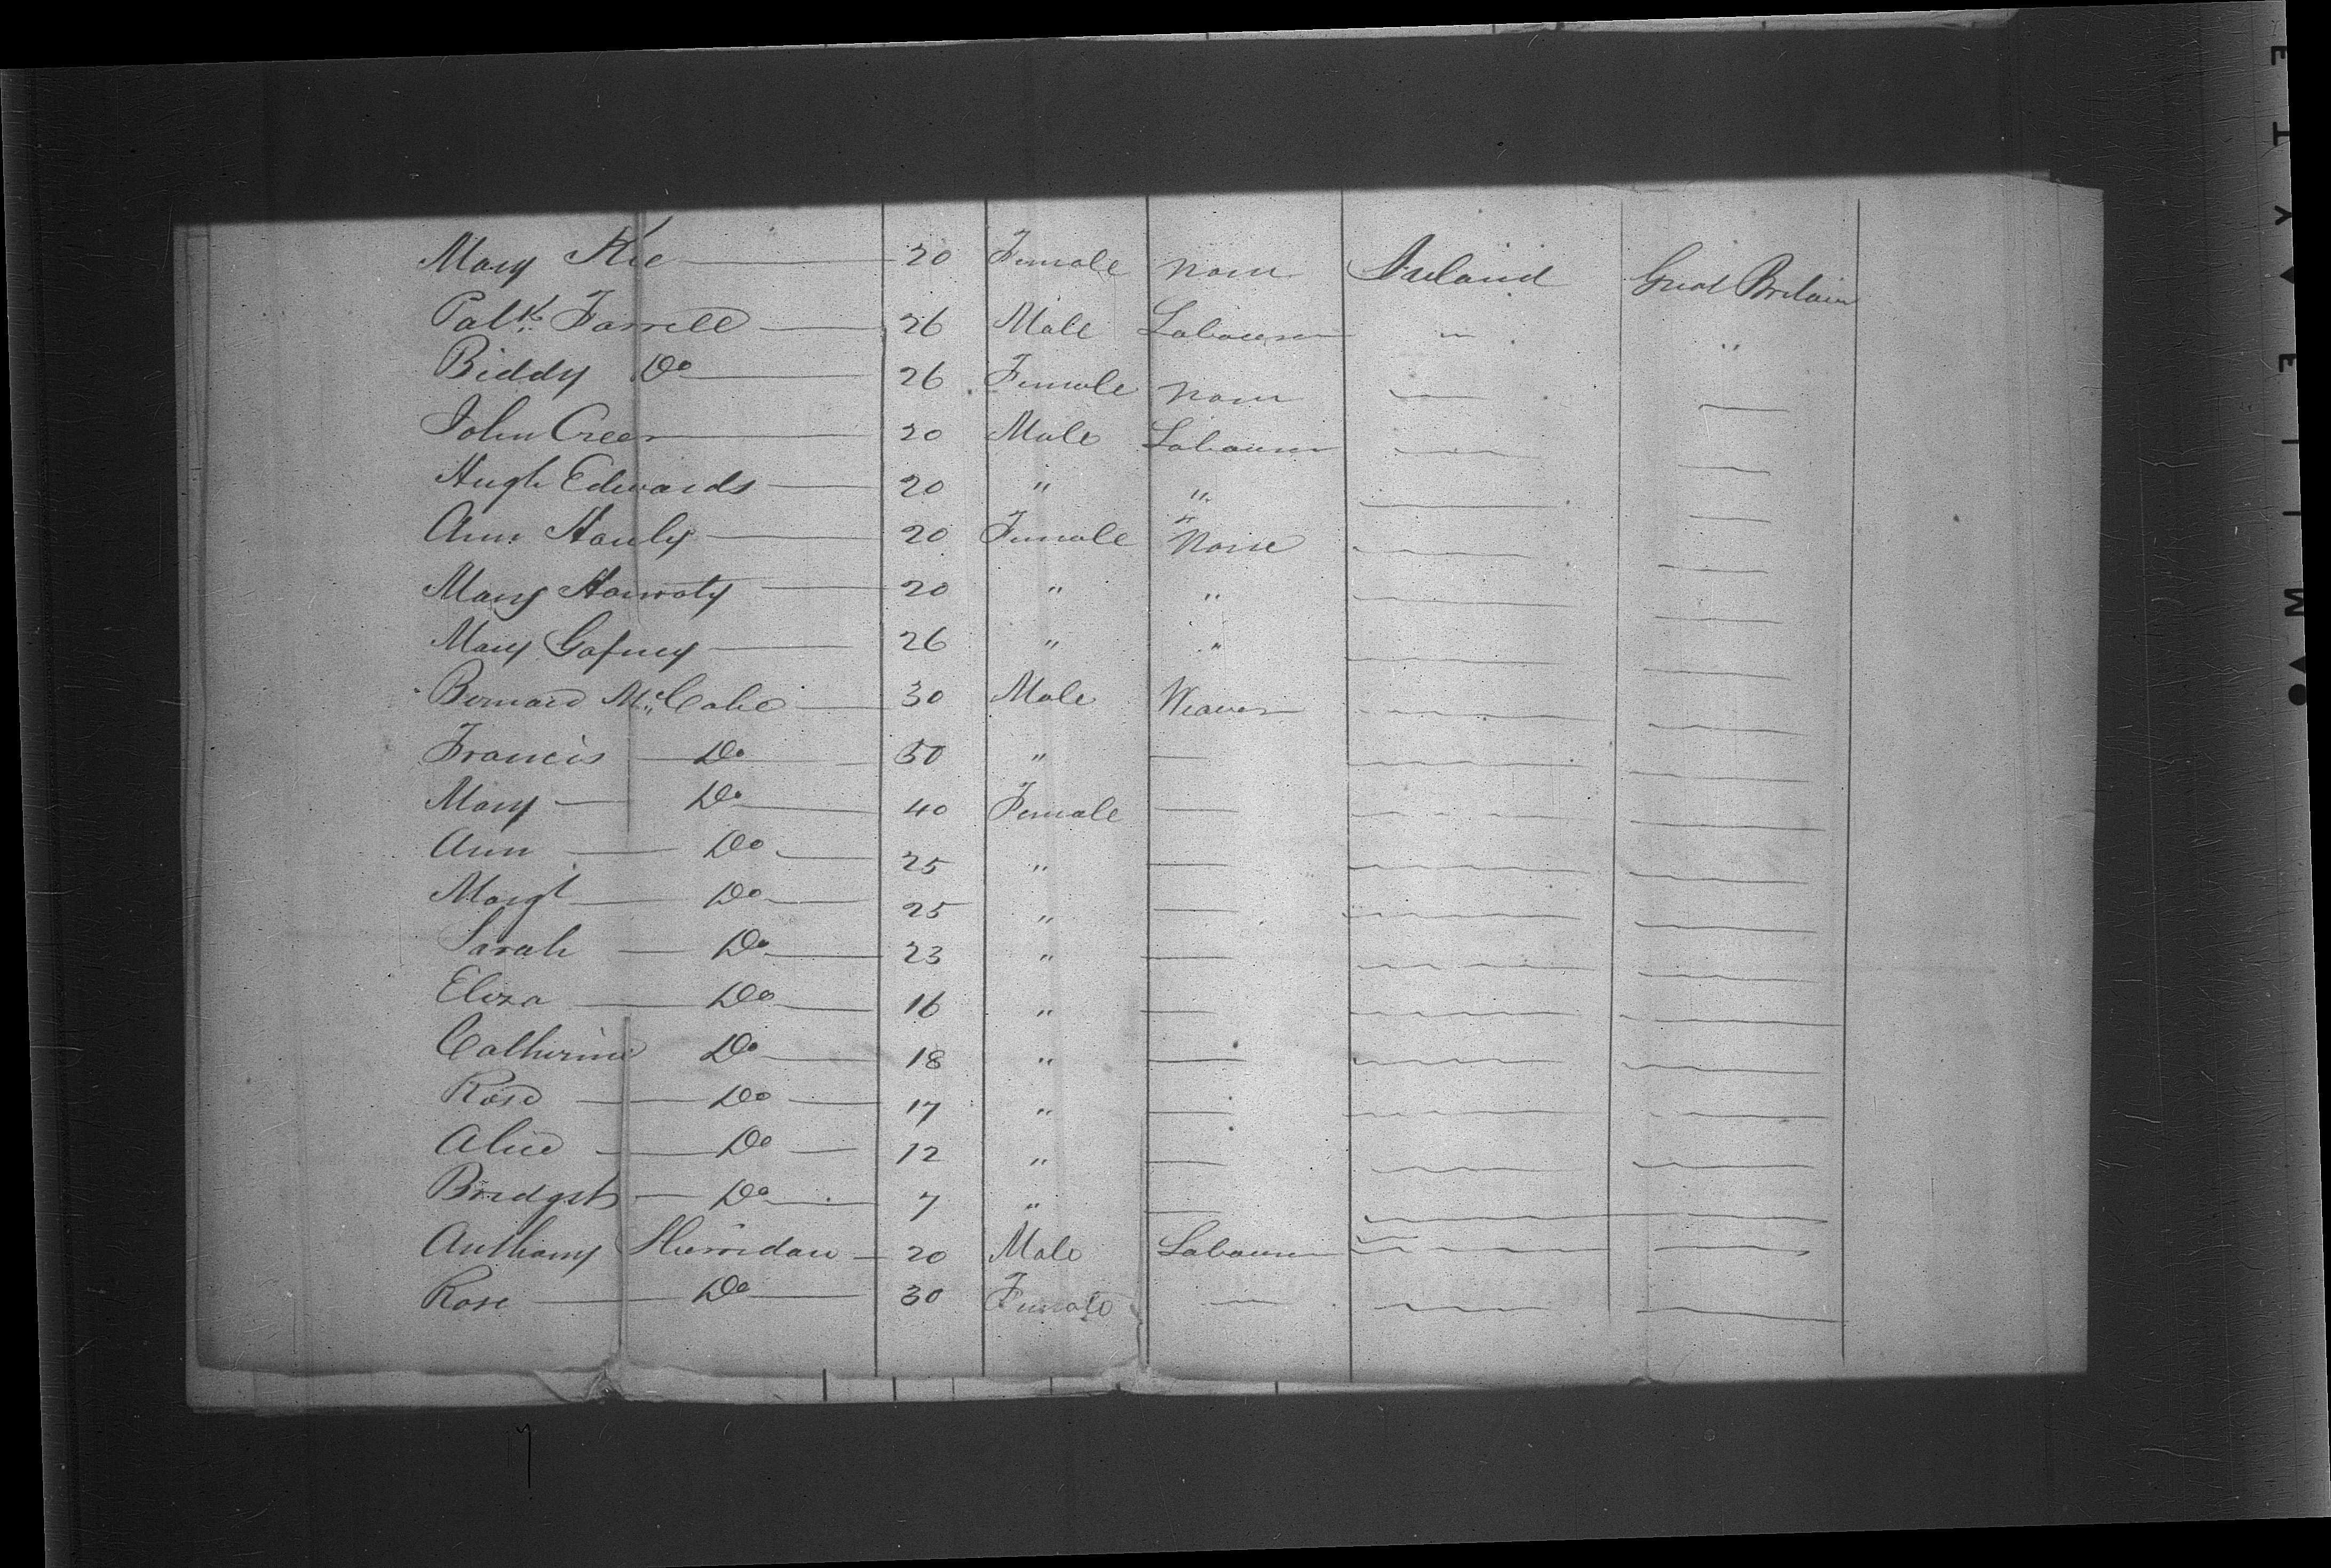 Mary Kee 20 Female None Ireland Great Britain
Patk Farrell 26 Male Labourer " "
Biddy Do 26 Female None
John Creer 20 Male Labourer
Hugh Edwards 20 " "
Ann Hanly 20 Female None
Mary 20 " "
Mary Gafney 26 " "
Bernard McCabe 30 Male Weaver
Francis Do 50 "
Mary Do 40 Female
Ann Do 25 "
Margt Do 25 "
Sarah Do 23 "
Eliza Do 16 "
Catherine Do 18 "
Rose Do 17 "
Alice Do 12 "
Bridget Do 7 "
Anthony Sherridan 20 Male Labourer
Rose Do 30 Female